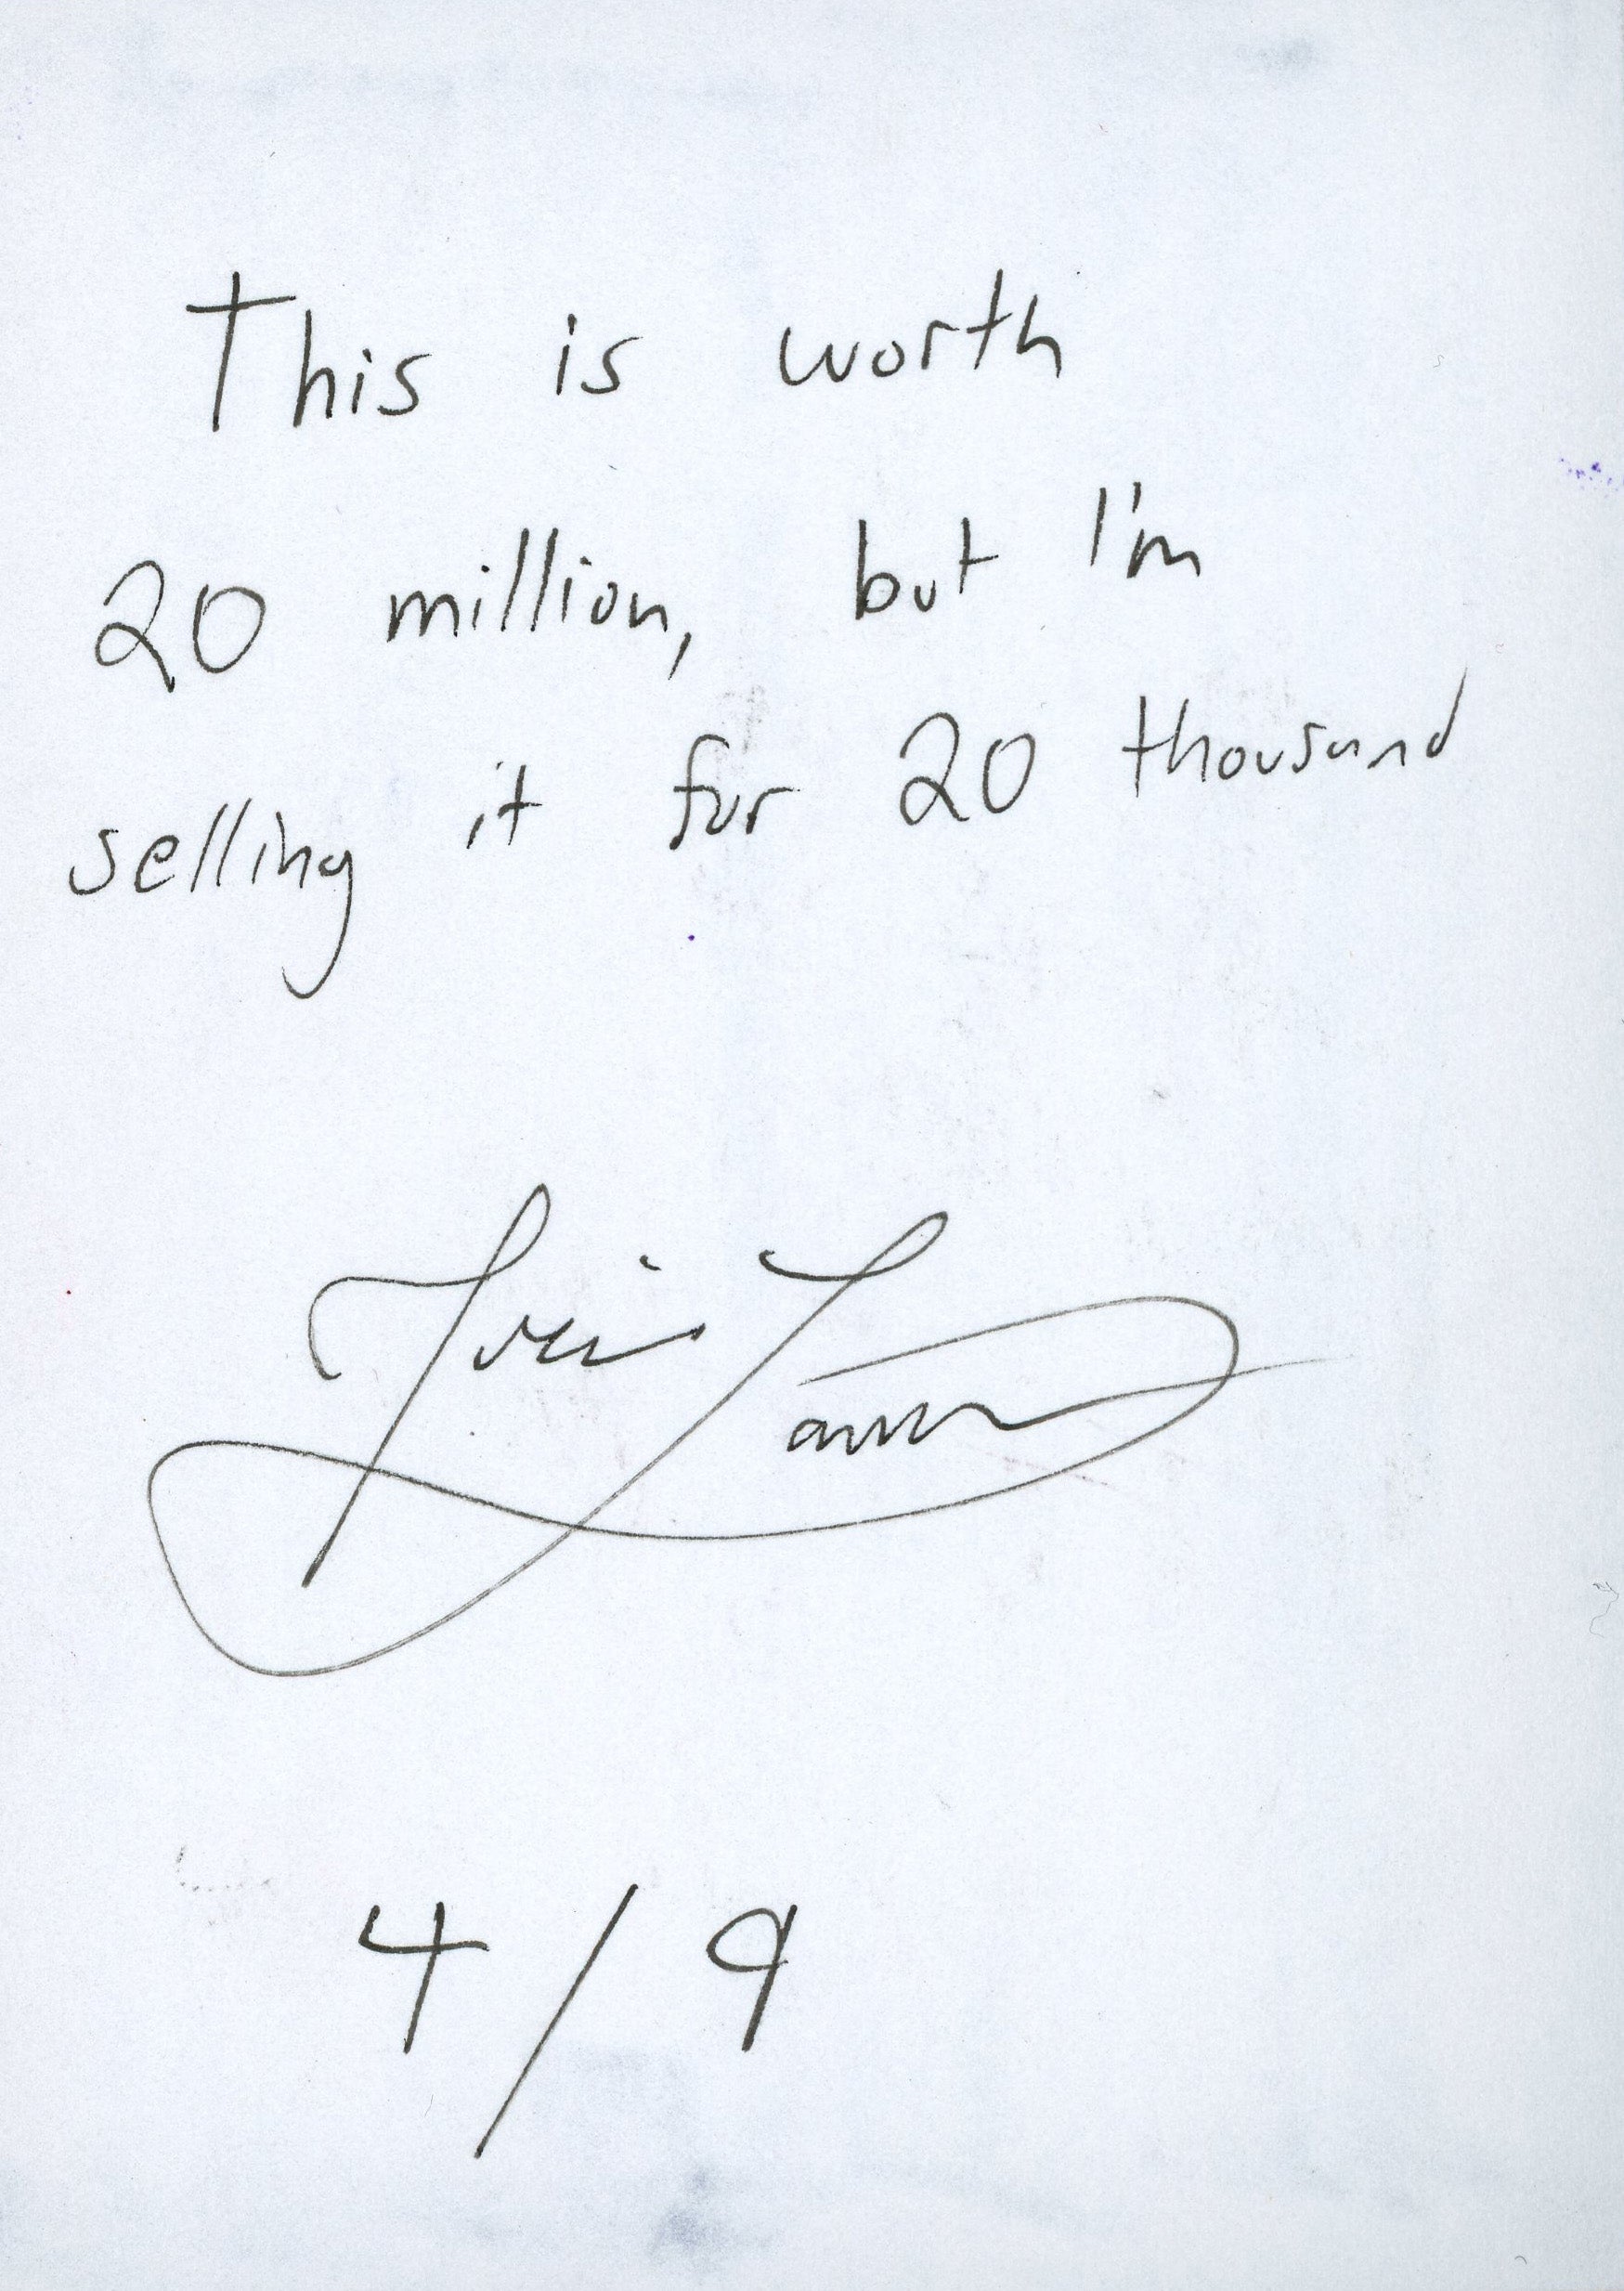 This is worth
20 million, but I'm
selling it for 20 thousand
4/9